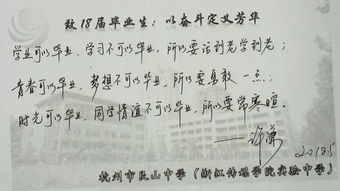 致18届毕业生：以奋斗定义芳华
学业可以毕业，学习不可以毕业，所以要活到老学到老；
青春可以毕业，梦想不可以毕业，所以要勇敢一点；
时光可以毕业，同学情谊不可以毕业，所以要常寒暄。
——许涛
2018.5
杭州市艮山中学（浙江传媒学院实验中学）